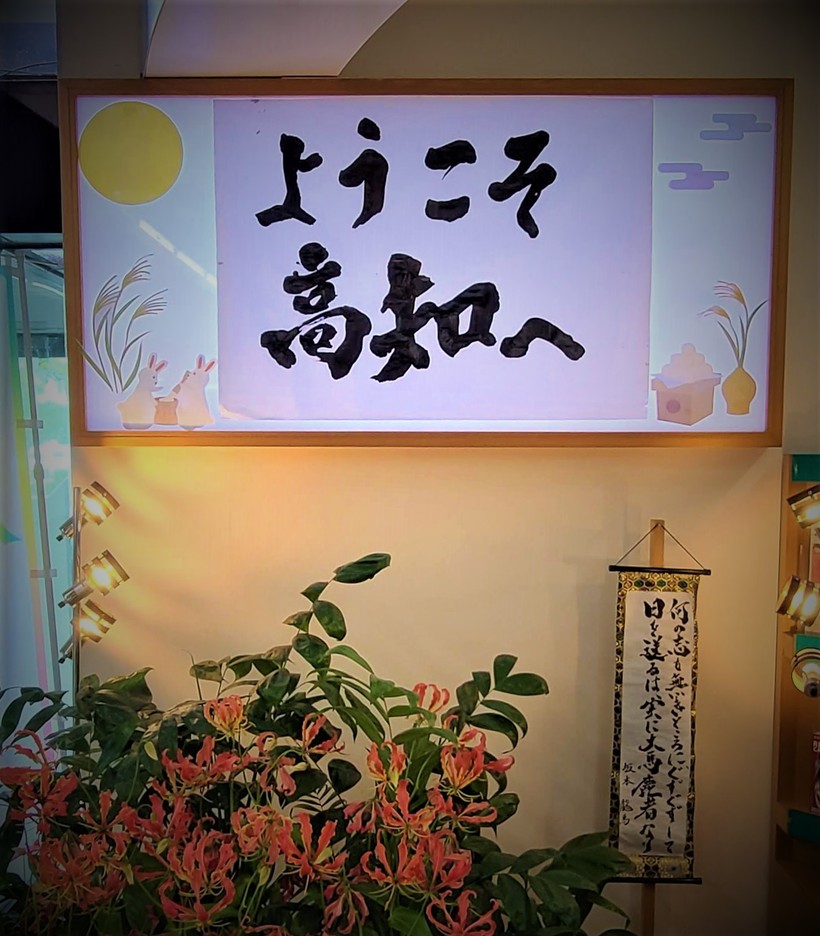 ようこそ
高知へ
何の志も無きところにぐずぐずして
日を送るは実に大馬鹿者なり
坂本龍馬